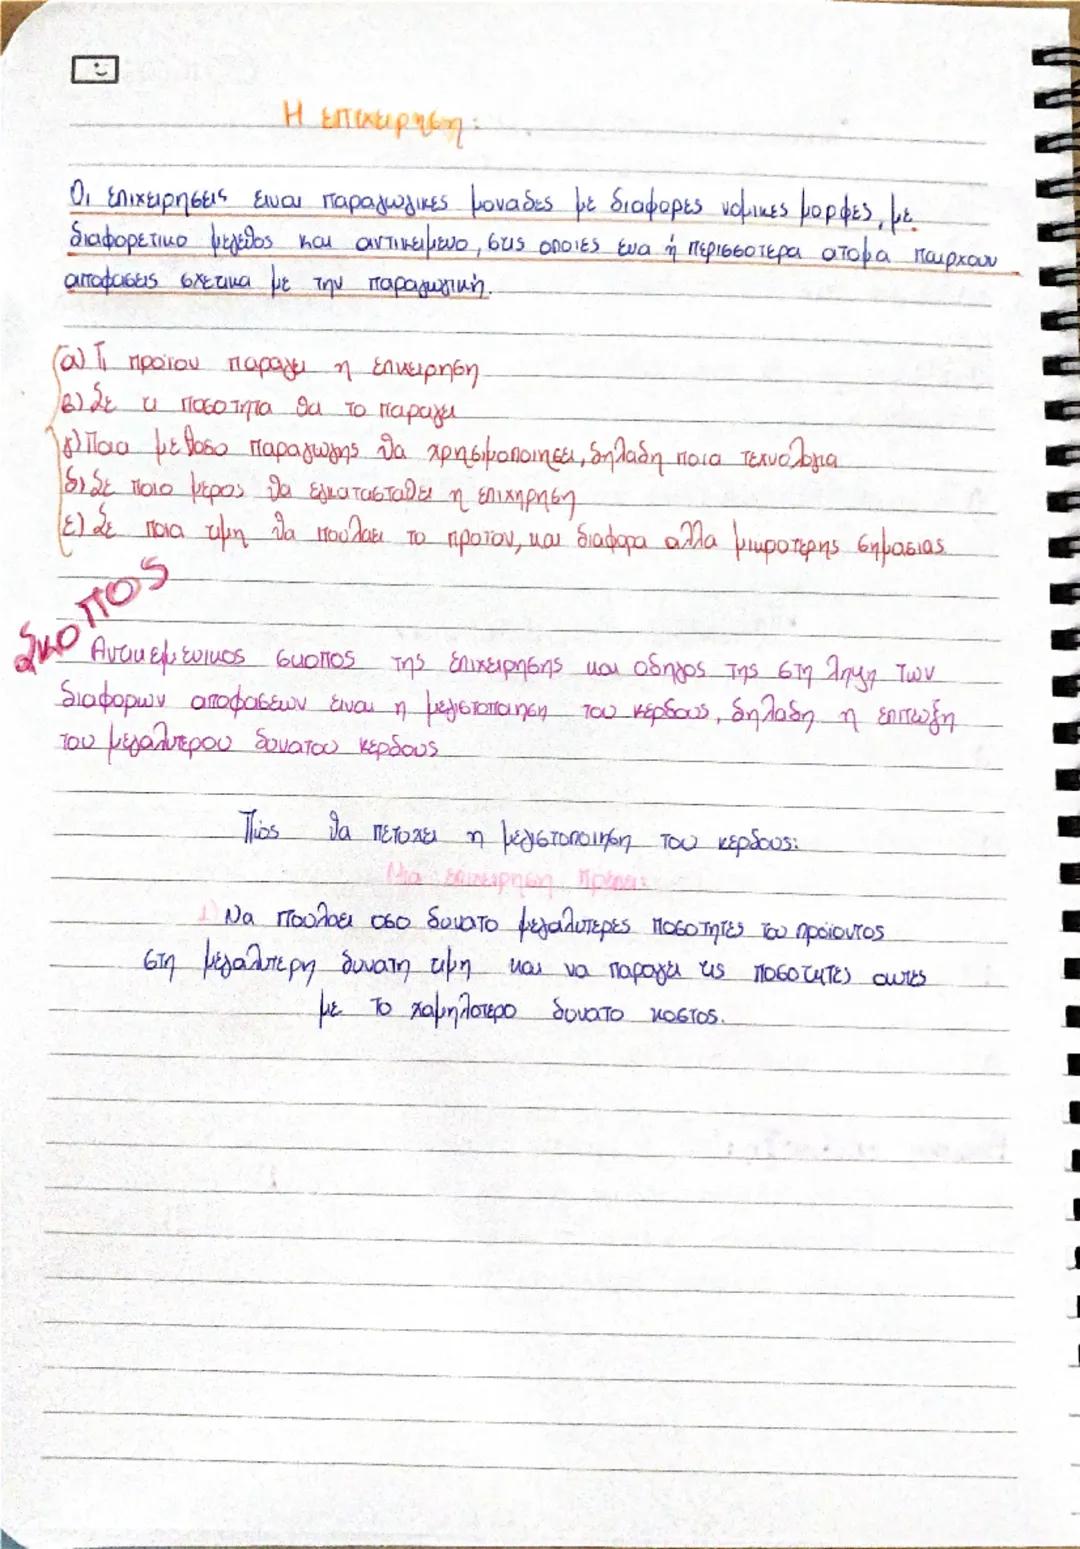 Η επιχειρηση:
Οι επιχειρησεις ειναι παραγωγικες μοναδες με διαφορες νομικες μορφες, με
διαφορετικο μεγεθος και αντικειμενο, στις οποιες ενα ή περισσοτερα ατομα παιρχουν
αποφασεις σχετικα με την παραγωγικη.
α) Τι προϊον παραγει η επιχειρηση
β) Σε τι ποσοτητα θα το παραγει
γ) Ποια μεθοδο παραγωγης θα χρησιμοποιησει, δηλαδη ποια τεχνολογια
δ) Σε ποιο μερος θα εγκατασταθει η επιχηρηση
ε) Σε ποια τιμη θα πουλαει το προϊον, και διαφορα αλλα μικροτερης σημασιας
ΣΚΟΠΟΣ
Αντικειμενικος σκοπος της επιχειρησης και οδηγος της στη ληψη των
διαφορων αποφασεων ειναι η μεγιστοποιηση του κερδους, δηλαδη η επιτωξη
του μεγαλυτερου δυνατου κερδους
Πώς θα πετυχει η μεγιστοποιηση του κερδους:
Μια επιχειρηση πρεπει:
1) Να πουλαει οσο δυνατο μεγαλυτερες ποσοτητες του προϊοντος
στη μεγαλυτερη δυνατη τιμη και να παραγει τις ποσοτητες αυτες
με το χαμηλοτερο δυνατο κοστος.